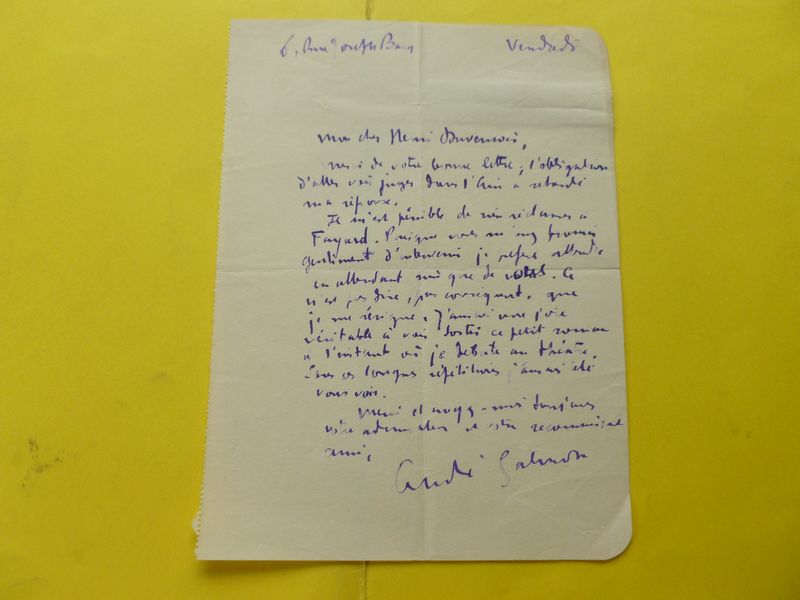 6, Rue Joseph Bara Vendredi
Mon cher Henri Duvernois,
merci de votre bonne lettre, l'obligation
d'aller voir juger dans l'Ain a retardé
ma réponse.
Il m'est pénible de rien réclamer à
Fayard. Puisque vous m'avez promis
gentiment d'intervenir je préfère attendre
en attendant que de vous. Ce
n'est pas dire, par conséquent, que
je me résigne. J'aurai une joie
véritable à voir sortir ce petit roman
à l'instant où je débute au théâtre.
Sans ces longues répétitions j'aurais été
vous voir.
Merci et croyez-moi toujours
votre admirateur et votre reconnaissant
ami,
André Salmon